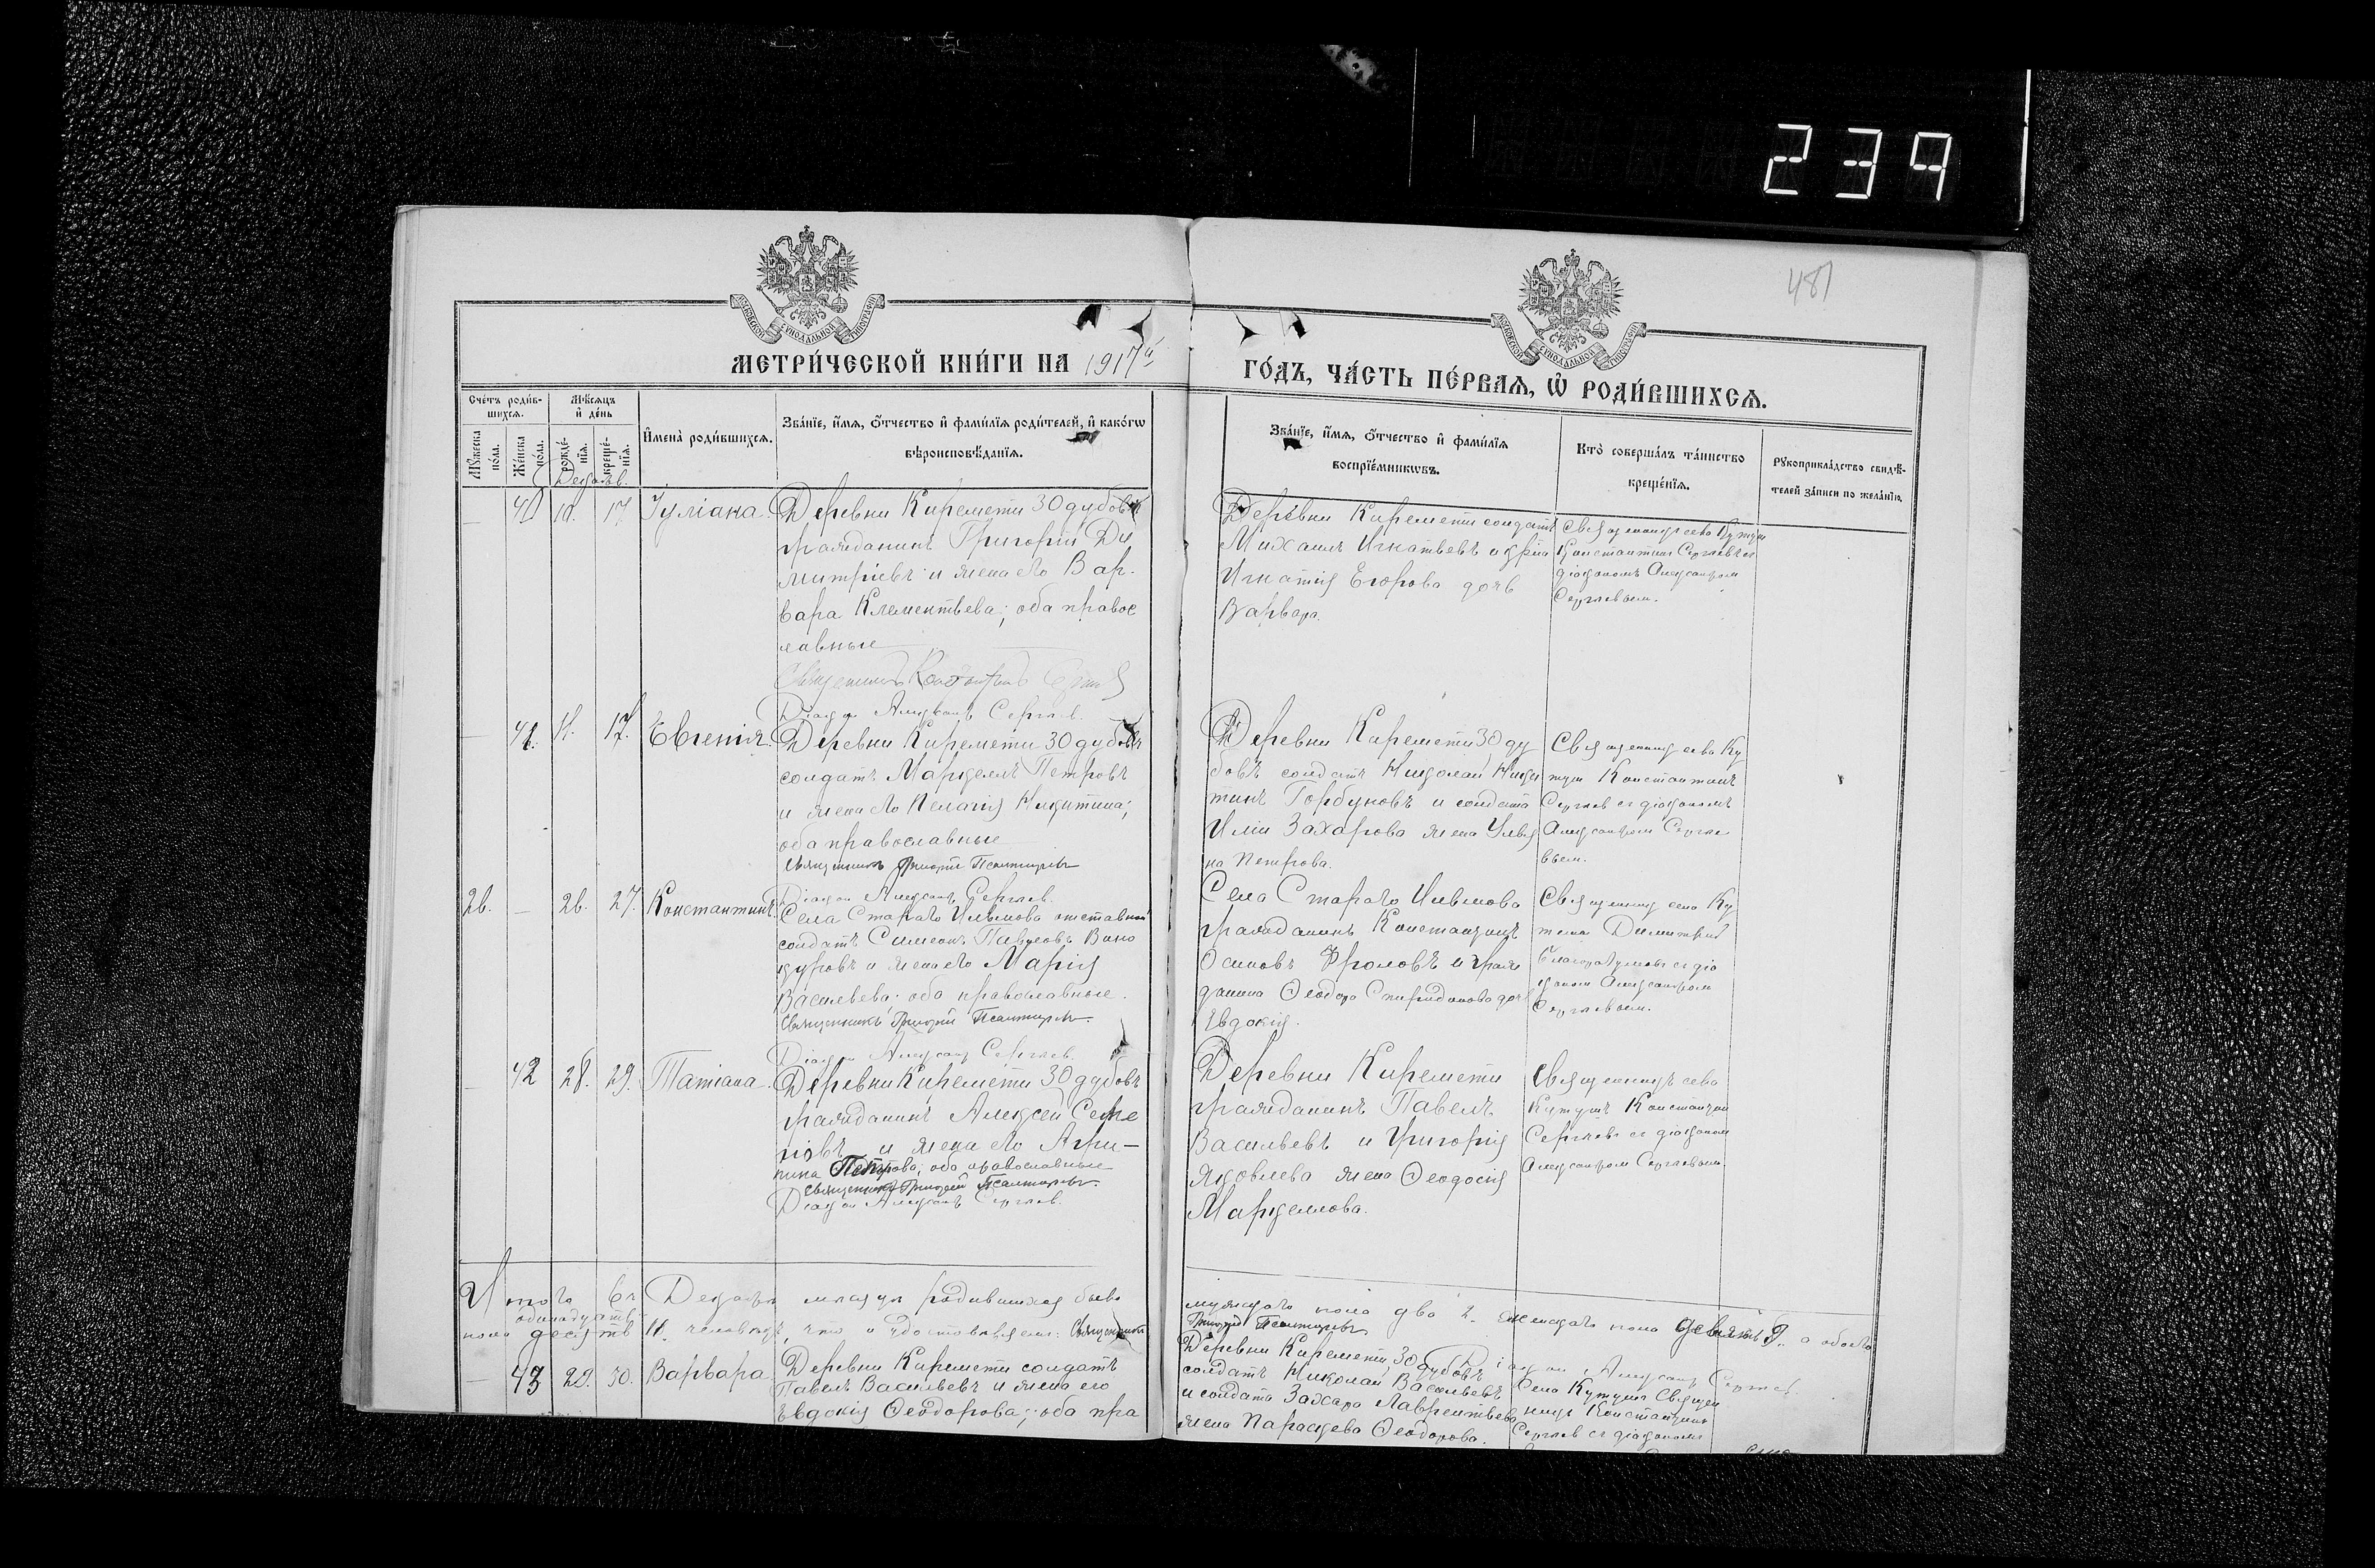 239
481
МЕТРИ́ЧЕСКОЙ КНИ́ГИ НА 1917й
ГО́ДЪ, ЧА́СТЬ ПЕ́РВАѦ, Ѽ РОДИ́ВШИХСѦ.
Сче́тъ роди́в-
шихсѧ.
Мꙋ́жеска
по́ла.
Же́нска
по́ла.
Мѣ́сѧцъ
и҆ де́нь
рожде́-
нїѧ.
креще́-
нїѧ.
И҆мена̀ роди́вшихсѧ.
Зва́нїе, и҆́мѧ, ѻ҆́тчество и҆ фами́лїѧ роди́телей, и҆ како́гѡ
вѣроисповѣ́данїѧ.
Зва́нїе, и҆́мѧ, ѻ҆́тчество и҆ фами́лїѧ
воспрїе́мникѡвъ.
Кто̀ соверша́лъ та́инство
креще́нїѧ.
Рꙋкоприкла́дство свидѣ́-
телей за́писи по жела́нїю.
17. Іуліана. Деревни Киремети 30 дубовъ
гражданинъ Григорій Ди
митріевъ и жена его Вар-
вара Клементьева; оба правос
лавные
Деревни Киремети солдатъ
Михаилъ Игнатьевъ и
Игнатія Егорова дочь
Варвара.
Константинъ Сергѣевъ съ
діакономъ Александромъ
Сергѣевымъ.
Діаконъ Александръ Сергѣев.
17. Евгенія. Деревни Киремети 30 дубовъ
солдатъ Маркеллъ Петровъ
и жена его Пелагія Никитина;
оба православные
Священникъ Григорій Псалтировъ
Діаконъ Александръ Сергѣев.
Деревни Киремети 30 ду
бовъ солдатъ Николай Ники
тинъ Горбуновъ и солдата
Иліи Захарова жена Улья
на Петрова.
Священникъ села Ку
тушъ Константинъ
Сергѣевъ съ діакономъ
Александромъ Сергѣе
вымъ.
26. — 26. 27. Константинъ. Села Стараго отставной
солдатъ Симеонъ
и жена его Марія
Васильева; оба православные.
Священникъ Григорій Псалтировъ.
Діаконъ Александръ Сергѣев.
Села Стараго
гражданинъ Константинъ
Осиповъ Фроловъ и граж
данина Ѳеодора Спиридонова дочь
Евдокія.
Священникъ села Ку
тушъ Димитрій
съ діа
кономъ Александромъ
Сергѣевымъ.
— 42 28. 29. Татіана. Деревни Киремети 30 дубовъ
гражданинъ Алексей
и жена его Агри-
пина Петрова; оба православные
Священникъ Григорій Псалтировъ.
Діаконъ Александръ Сергѣев.
Деревни Киремети
гражданинъ Павелъ
Васильевъ и Григорія
Яковлева жена Ѳеодосія
Маркеллова.
Священникъ села
Кутушъ Константин
Сергѣевъ съ діакономъ
Александромъ Сергѣевымъ.
Итого въ Декабрѣ мѣсяцѣ родившихся было
мужскаго пола два 2. женскаго пола девять 9. а обоего
одинадцать
пола 11. человѣкъ, что и удостовѣряемъ: Священникъ
Григорій Псалтировъ
Діаконъ Александръ Сергѣев.
— 43 29. 30. Варвара. Деревни Киремети солдатъ
Павелъ Васильевъ и жена его
Евдокія Ѳеодорова; оба пра
Деревни Киремети 30 дубовъ
солдатъ Николай Васильевъ
и солдата Захара Лаврентьева
жена Параскева Ѳеодорова.
Села Кутушъ Священ
никъ Константинъ
Сергѣевъ съ діакономъ